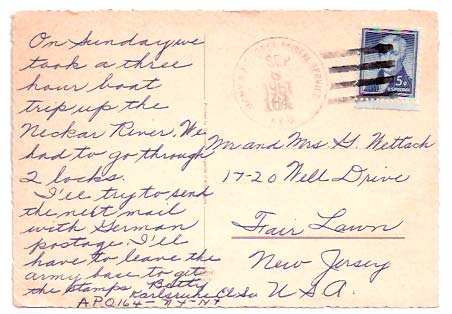 On Sunday we
took a three
hour boat
trip up the
Neckar River. We
had to go through
2 locks.
I'll try to send
the next mail
with German
postage. I'll
have to leave the
army base to get
the stamps. Betty
Karlsruhe El. Sc
A.P.O. 164 - N.Y. - N.Y
SEP
5¢
Mr and Mrs G. Wettach
17-20 Well Drive
Fair Lawn
New Jersey
U.S.A.